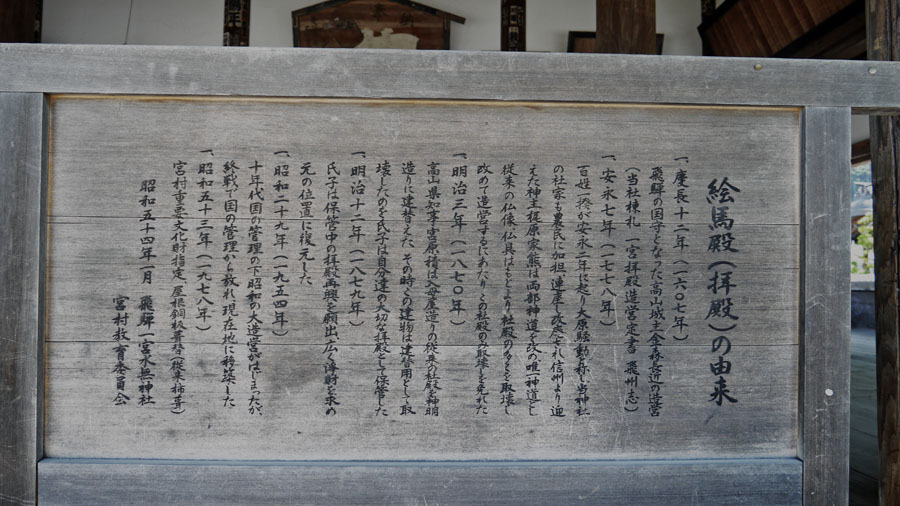 絵馬殿(拝殿)の由来
一、慶長十二年(一六〇七年)
飛騨の国守となった高山城主金森長近の造営
(当社棟札 一宮拝殿造営定書 飛州志)
一、安永七年(一七七八年)
百姓一揆が安永二年に起り大原騒動と称し当神社
の社家も農民に加担、連座し改廃され信州より迎
えた神主梶原家熊は両部神道を改め唯一神道とし
従来の仏像、仏具はもとより社殿の多くを取壊し
改めて造営するにあたりこの社殿の取壊しを免れた
一、明治三年(一八七〇年)
高山県知事宮原積は入母屋造りの従来の社殿を神明
造りに建替えた その時この建物は建替用として取
壊したのを氏子は自分達の大切な拝殿として保管した
一、明治十二年(一八七九年)
氏子は保管中の拝殿再興を願出、広く浄財を求め
元の位置に復元した
一、昭和二十九年(一九五四年)
十年代国の管理の下昭和の大造営がはじまったが、
終戦で国の管理から放れ現在地に移築した
一、昭和五十三年(一九七八年)
宮村重要文化財指定、屋根銅板葺替(従来柿葺)
昭和五十四年一月 飛騨一宮水無神社
宮村教育委員会
奉納